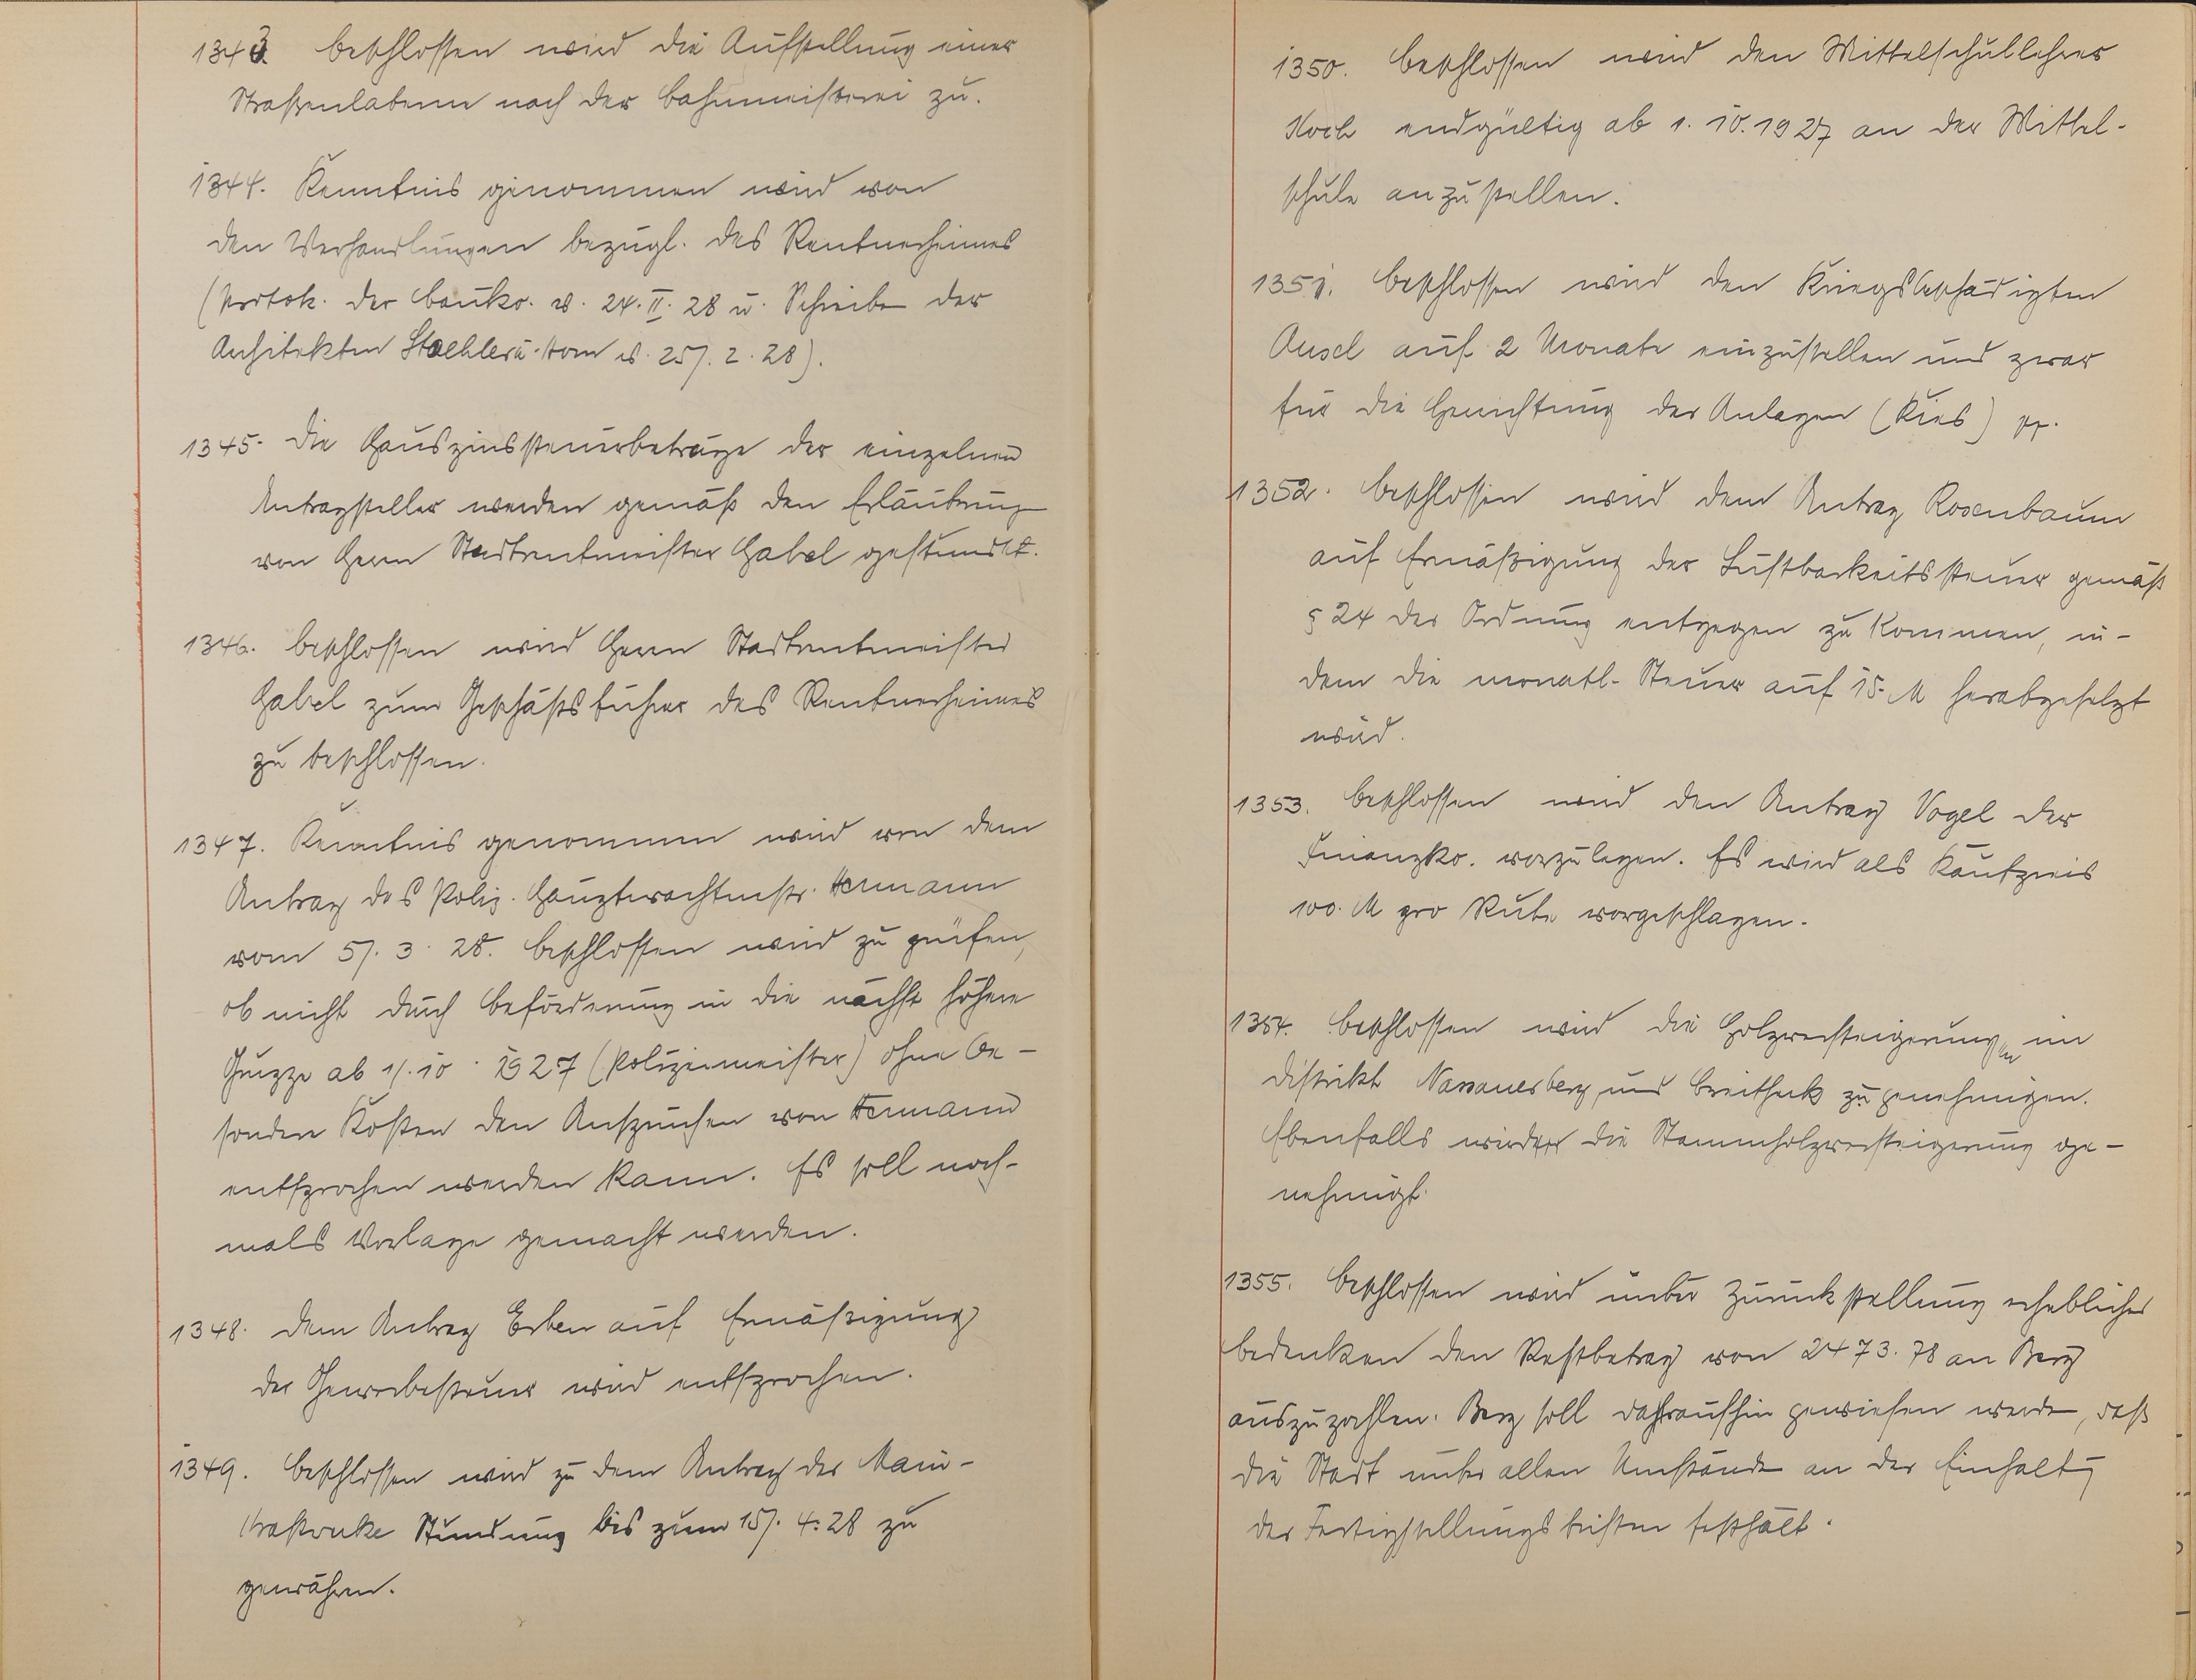 1343. beschlossen wird die Aufstellung einer
Straßenlaterne nach der Bahnmeisterei zu.
1344. Kenntnis genommen wird von
den Verhandlungen bezügl. des Rentnerheimes
(Protok. der Bauko. v. 24. II. 28 u. Schreiben der
Architekten Stoehler u. Horn v. 25/. 2. 28).
1345. Die Hauszinssteuerbeträge der einzelnen
Antragsteller werden gemäß den Erläuterung
von Herrn Stadtrentmeister Gabel gestundet.
1346. beschlossen wird Herrn Stadtrentmeister
Gabel zum Geschäftsführer des Rentnerheimes
zu beschlossen.
1347. Kenntnis genommen wird von dem
Antrag des Poliz. Hauptwachtmstr. Hermann
vom 5/. 3. 28. beschlossen wird zu prüfen,
ob nicht durch Beförderung in die nächst höhere
Gruppe ab 1/. 10. 1927 (Polizeimeister) ohne be-
sondere Kosten den Ansprüchen von Hermann
entsprochen werden kann. Es soll noch-
mals Vorlage gemacht werden.
1348. Dem Antrag Erben auf Ermäßigung
der Gewerbesteuer wird entsprochen.
1349. beschlossen wird zu dem Antrag der Main-
kraftwerke Stundung bis zum 15/. 4. 28 zu
gewähren.
1350. beschlossen wird den Mittelschullehrer
Koch endgültig ab 1. 10. 1927 an der Mittel-
schule anzustellen.
1351. beschlossen wird den Kriegsbeschädigten
auf 2 Monate einzustellen und zwar
für die Herrichtung der Anlagen (Kies) pp.
1352. beschlossen wird dem Antrag Rosenbaum
auf Ermäßigung der Lustbarkeitssteuer gemäß
§ 24 der Ordnung entgegen zu kommen, in-
dem die monatl. Steuer auf 15.- M herabgesetzt
wird.
1353. beschlossen wird den Antrag Vogel der
Finanzko. vorzulegen. Es wird als Kaufpreis
100. M pro Rute vorgeschlagen.
1354. beschlossen wird die Holzversteigerungen im
Distrikt Nassauersberg und Breitheck zu genehmigen.
Ebenfalls wird die Stammholzversteigerung ge-
nehmigt.
1355. beschlossen wird unter Zurückstellung erheblicher
Bedenken den Restbetrag von 2473. 78 an Berg
auszuzahlen. Berg soll daraufhin gewiesen werden, daß
die Stadt unter allen Umständen an der Einhaltg
der Fertigstellungsfristen festhält.